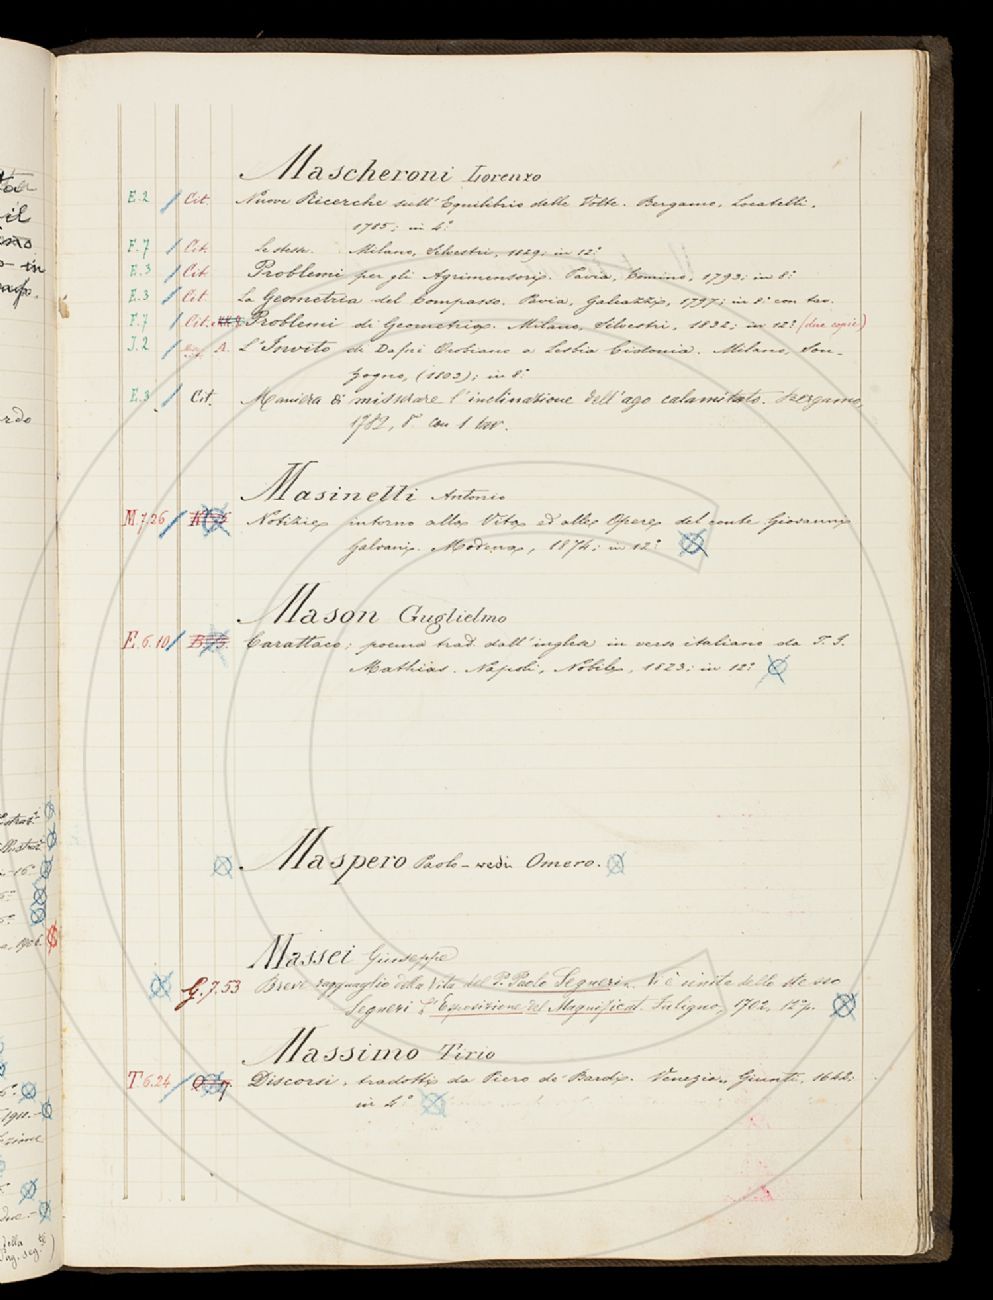 Mascheroni Lorenzo
E.2 Cit. Nuove Ricerche sull'Equilibrio delle Volte. Bergamo, Locatelli,
1785; in 4.°
F.7 Cit. Le stesse. Milano, Silvestri, 1829; in 12.°
E.3 Cit. Problemi per gli Agrimensori. Pavia, Comino, 1793; in 8.°
E.3 Cit. La Geometria del Compasso. Pavia, Galeazzi, 1797; in 8.° con tav.
F.7 Cit. Problemi di Geometria. Milano, Silvestri, 1832; in 12.° (due copie)
J.2 A. L'Invito di Dafni Orobiano a Lesbia Cidonia. Milano, Son-
zogno, (1803); in 8.°
E.3 Cit. Maniera di missurare l'inclinazione dell'ago calamitato. Bergamo,
1782, 8° con 1 tav.
Masinelli Antonio
M.7.26 Notizie intorno alla Vita ed alle Opere del conte Giovanni
Galvani. Modena, 1874; in 12.°
Mason Guglielmo
E.6.10 Carattaco; poema trad. dall'inglese in verso italiano da T. J.
Mathias. Napoli, Nobile, 1823; in 12.°
Maspero Paolo - vedi Omero.
Massei Giuseppe
G.7.53 Breve ragguaglio della Vita del P. Paolo Segneri. Vi è unita dello stesso
Segneri l'Esposizione del Magnificat. Fuligno, 1702, 12° p.
Massimo Tirio
T 6.24 Discorsi, tradotti da Piero de' Bardi. Venezia, Giunti, 1642;
in 4.°